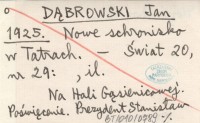 DĄBROWSKI Jan
1925. Nowe schronisko
w Tatrach. — Świat 20,
nr 29: , il.
Na Hali Gąsienicowej.
Poświęcenie. Prezydent Stanisław
BT/010/0789 -/.